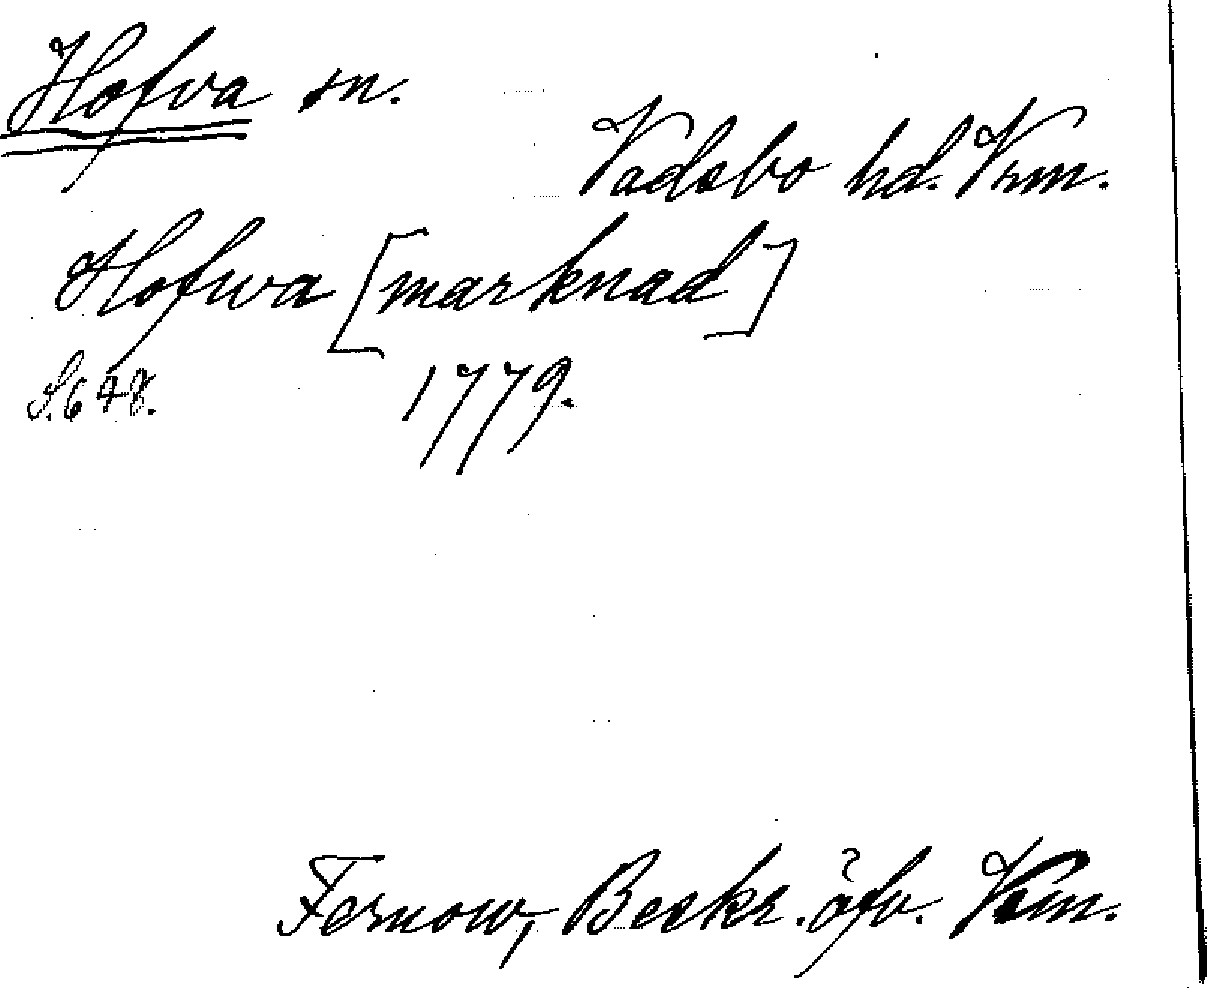 Hofva sn.
Vadsbo hd. Vrm.
Hofwa [marknad]
S. 648. 1779.
Fernow, Beskr. öfv. Vrm.